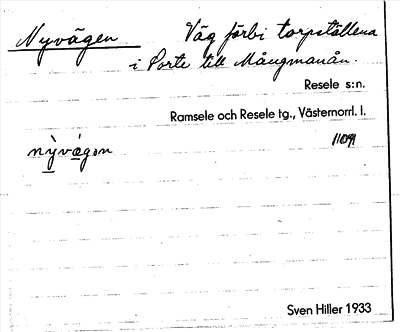 Nyvägen Väg förbi torpställena
i Porte till Mångmanån.
Resele s:n.
Ramsele och Resele tg., Västernorrl. l.
nỳvágən 11091
Sven Hiller 1933